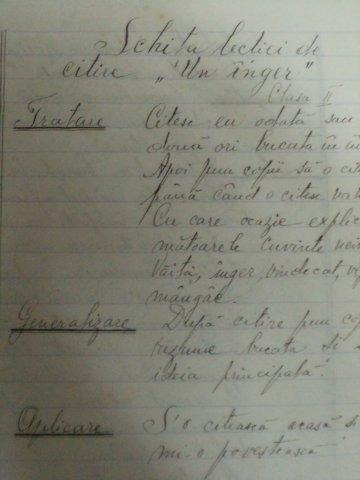 Schița lecției de
citire „Un înger"
Clasa II
Tratare Citesc eu odată sau
două ori bucata în
Apoi pun copii să o
până când o citesc
Cu care ocazie explic
mătoarele cuvinte
Văită, înger vindecat,
mângâe.
Generalizare După citire pun
rezume bucata și
ideia principală.
Aplicare S'o citească acasă și
mi-o povestească